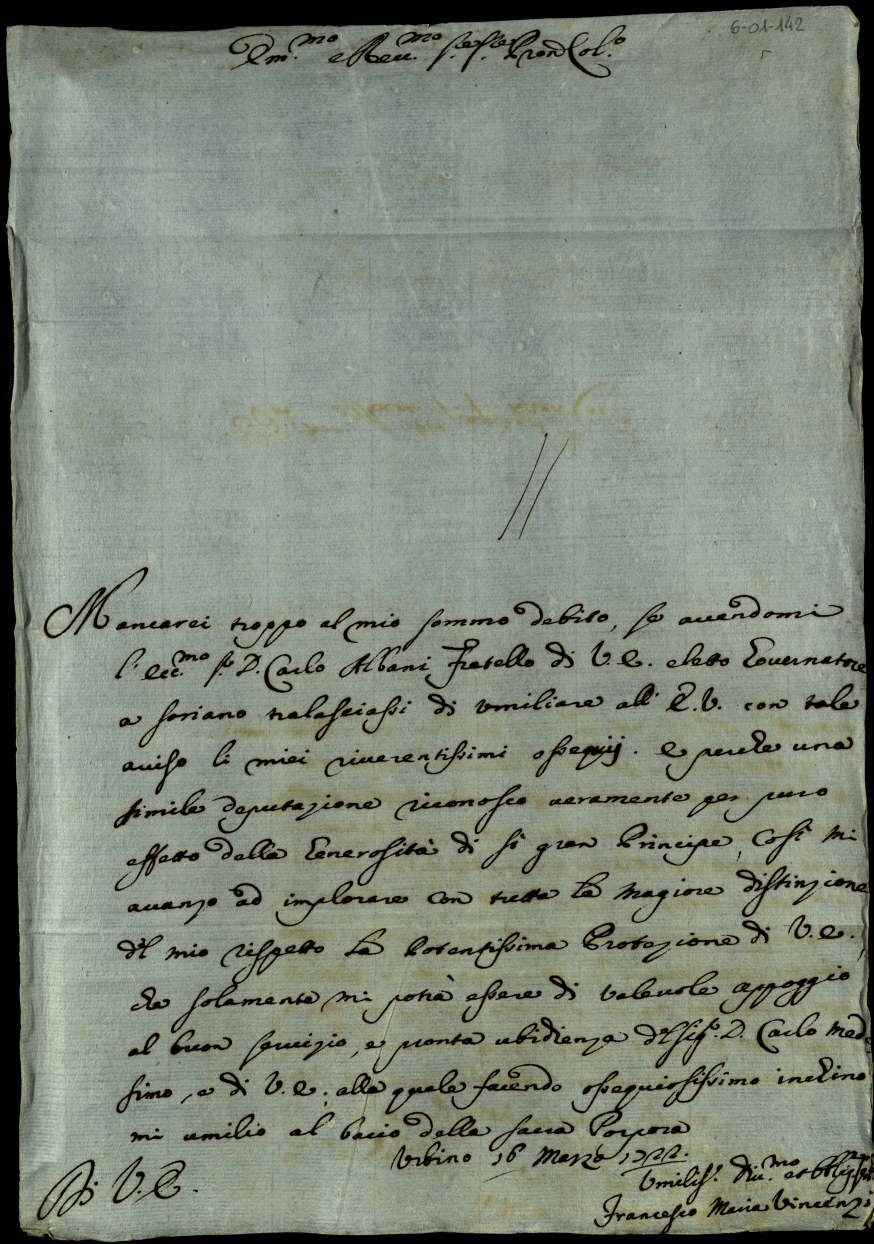 6-01-142
Em.mo e Rev.mo Sig.re Sig.re Pron Col.mo
Mancarei troppo al mio sommo debito, se avendomi
l'ecc.mo S.r D. Carlo Albani Fratello di V.E. eletto Governatore
a Soriano tralasciassi di umiliare all'E.V. con tale
aviso li miei riverentissimi ossequij. e perche una
simile deputazione riconosco veramente per puro
effetto della Generosità di sì gran Principe, così mi
avanzo ad implorare con tutta la magiore distinzione
del mio rispetto la Potentissima Protezione di V.E.,
che solamente mi potrà essere di valevole appoggio
al buon servizio, e pronta ubidienza del Sig.r D. Carlo med.
simo, e di V.E. alla quale facendo ossequiosissimo inchino
mi umilio al bacio della sacra Porpora
Urbino 16 Marzo 1722.
Di V.E.
Umilis.o Div.mo et Oblig.
Francesco Maria Vincenzi